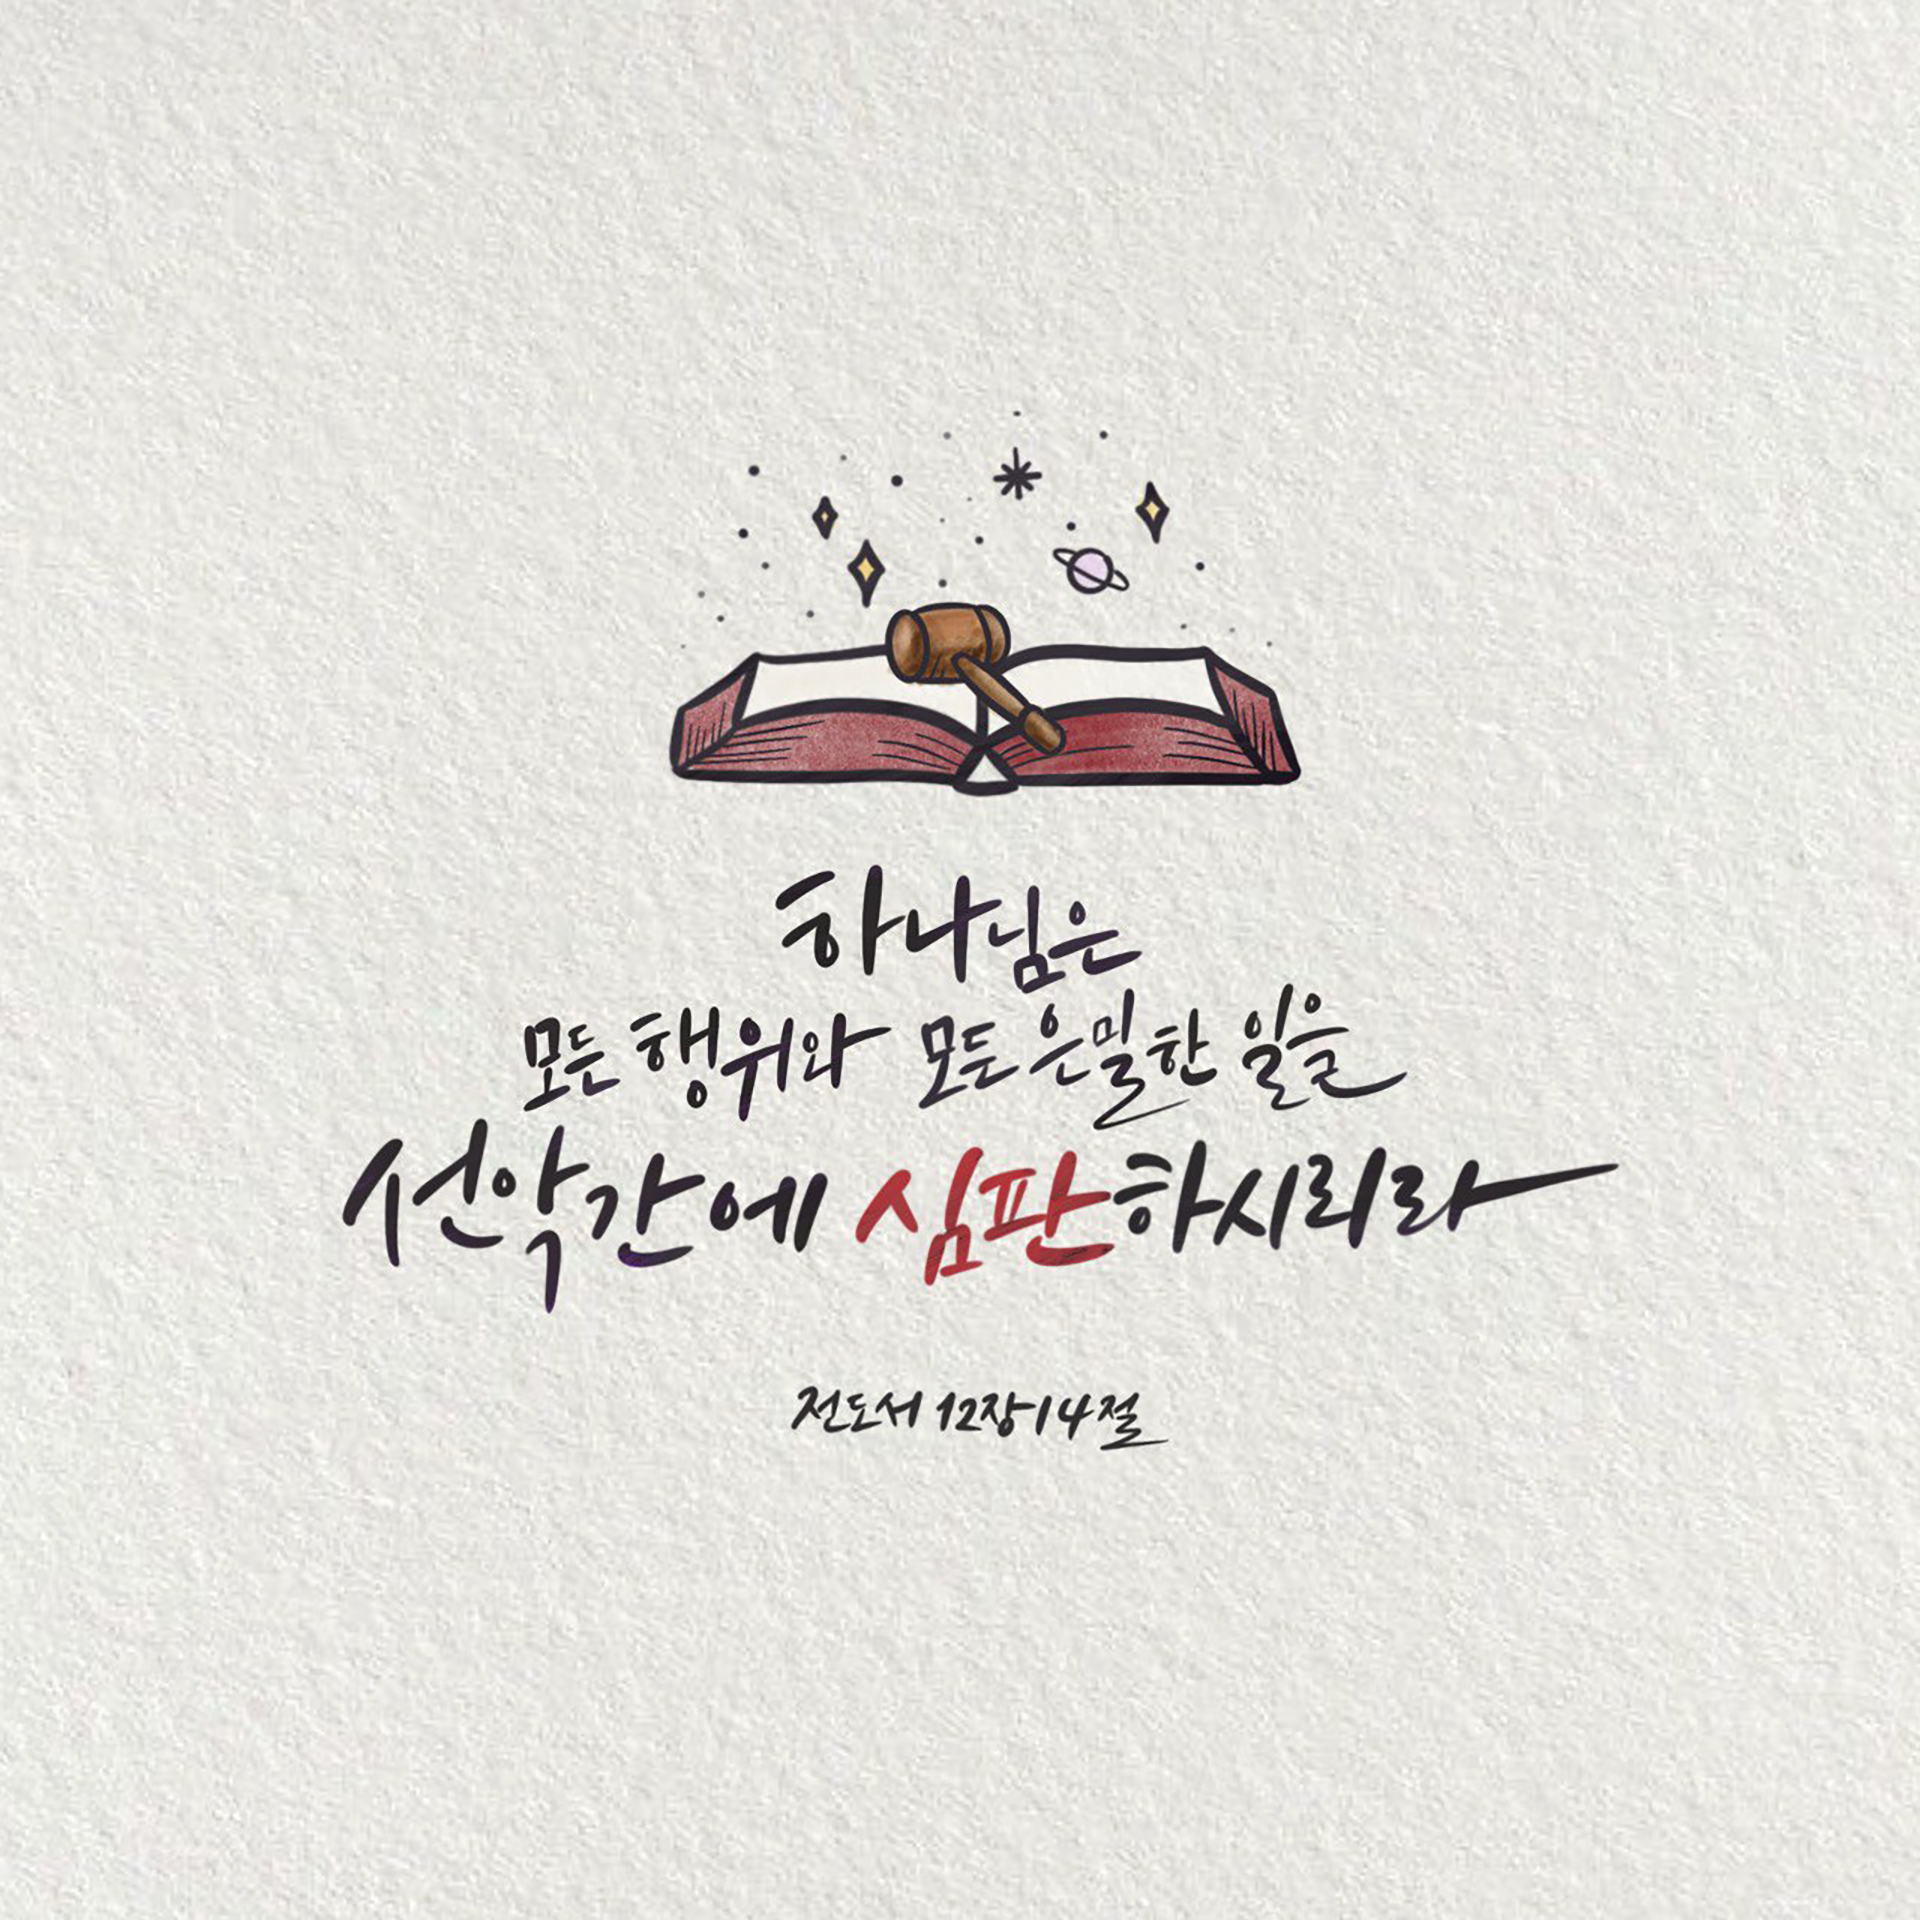 하나님은
모든 행위와 모든 은밀한 일을
선악간에 심판하시리라
전도서 12장 14절